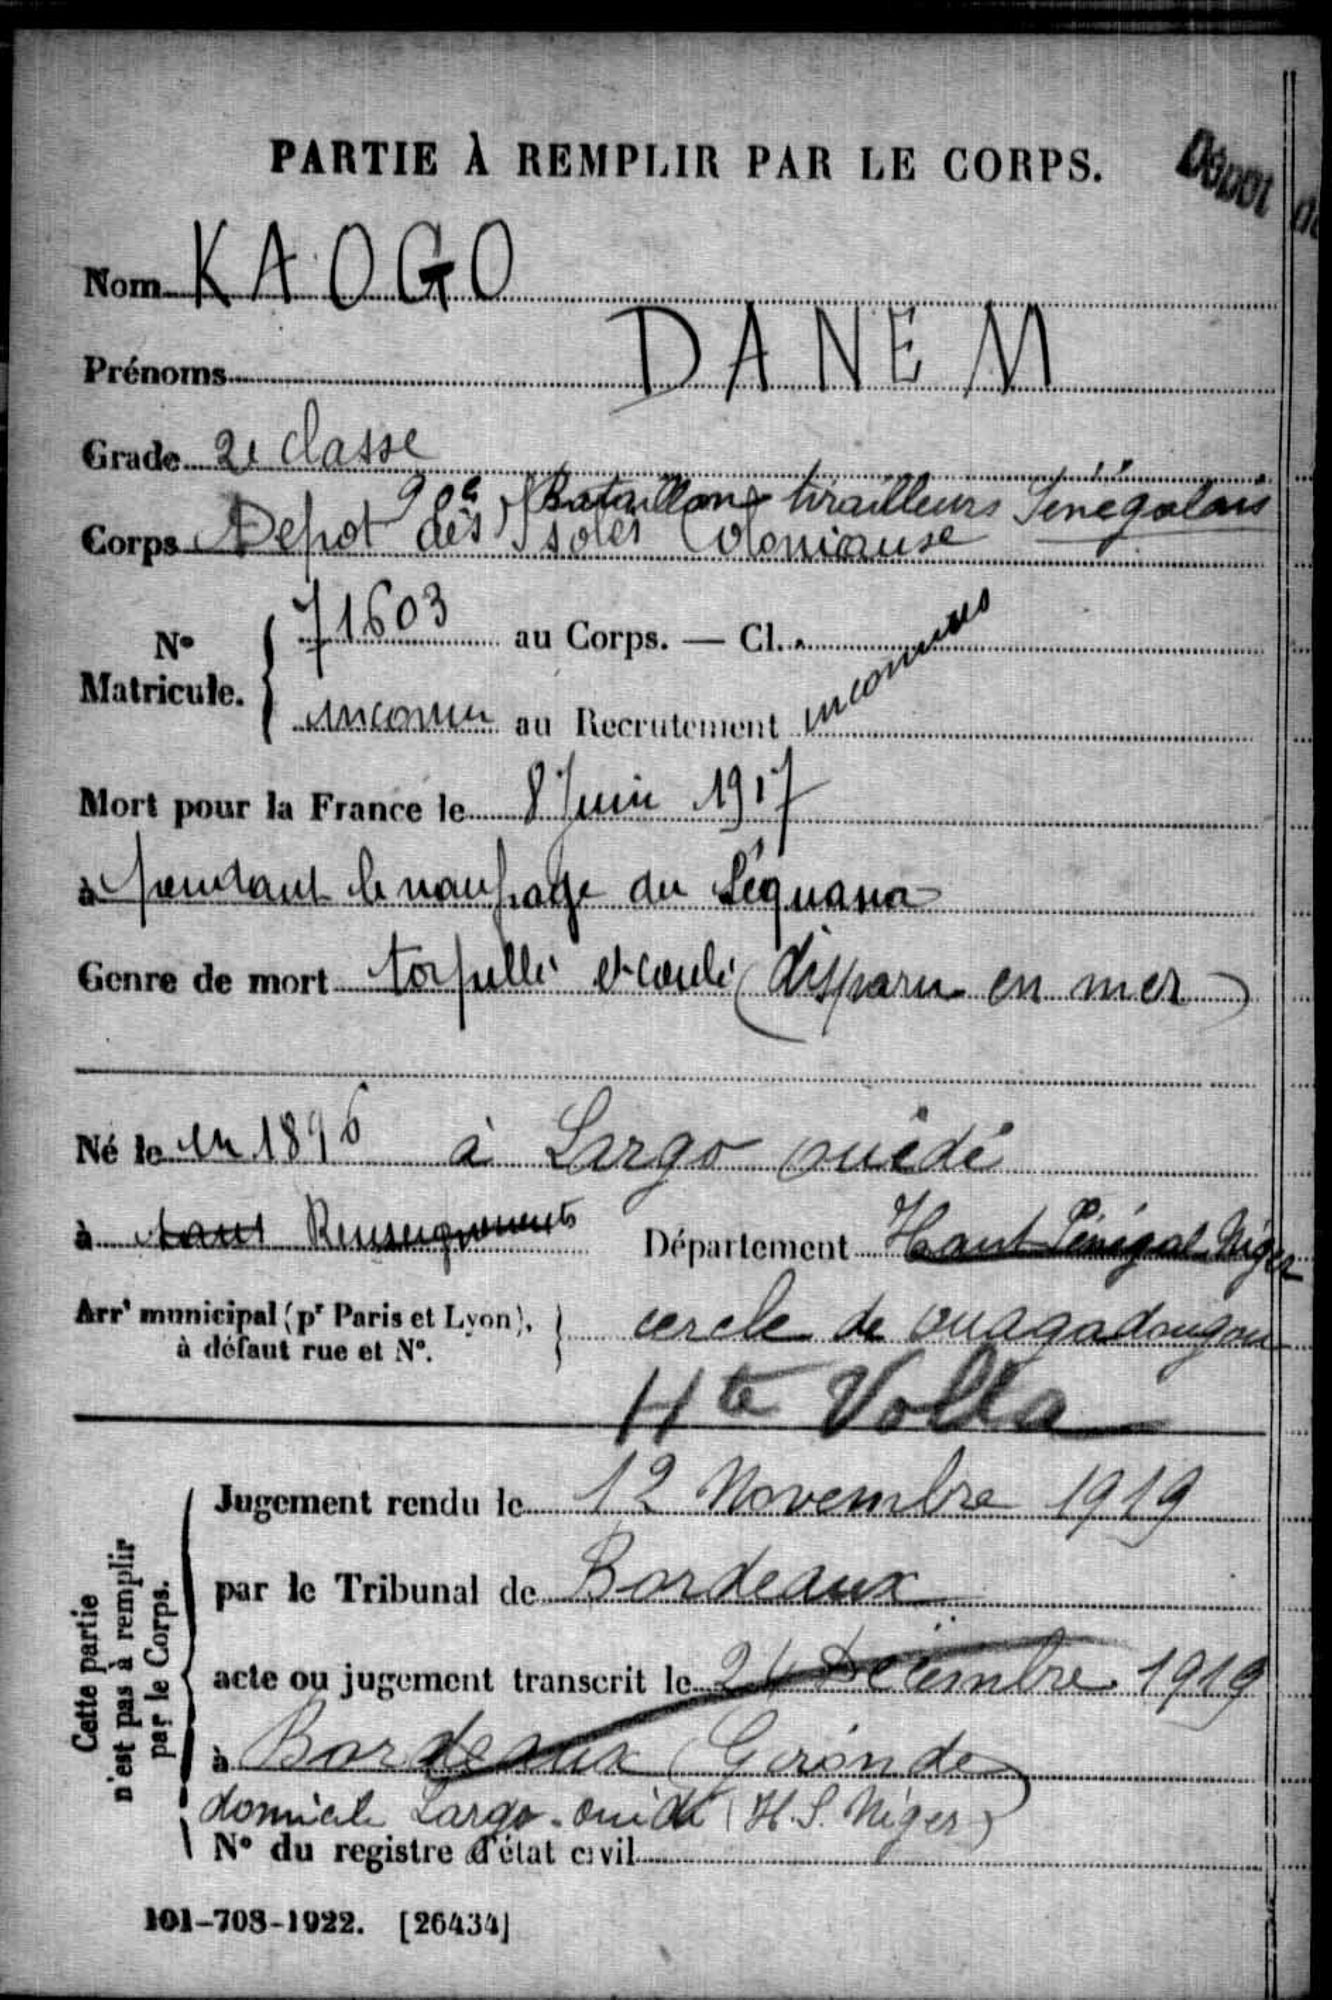 PARTIE À REMPLIR PAR LE CORPS.
Dépôt
Nom KAOGO
Prénoms DANEM
Grade 2e classe
90e Bataillon tirailleurs Sénégalais
Corps Depot des Isolés Coloniause
N° Matricule. 71603 au Corps. — Cl. inconnus
inconnu au Recrutement
Mort pour la France le 8 Juin 1917
à pendant le naufrage du Séquana
Genre de mort torpillé et coulé (disparu en mer)
Né le en 1896 à Largo ouédé
à sans Renseignements Département Haut Sénégal Niger
Arrt municipal (pr Paris et Lyon), à défaut rue et N°. cercle de ouagadougou
Hte Volta
Cette partie n'est pas à remplir par le Corps.
Jugement rendu le 12 Novembre 1919
par le Tribunal de Bordeaux
acte ou jugement transcrit le 24 Décembre 1919
à Bordeaux (Gironde)
domicile Largo-ouidi (H.S. Niger)
N° du registre d'état civil
101-708-1922. [26434]